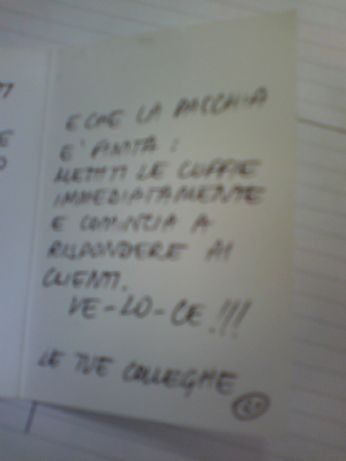 E CHE LA PACCHIA
E' FINITA :
METTITI LE CUFFIE
IMMEDIATAMENTE
E COMINCIA A
RISPONDERE AI
CLIENTI.
VE-LO-CE !!!
LE TUE COLLEGHE